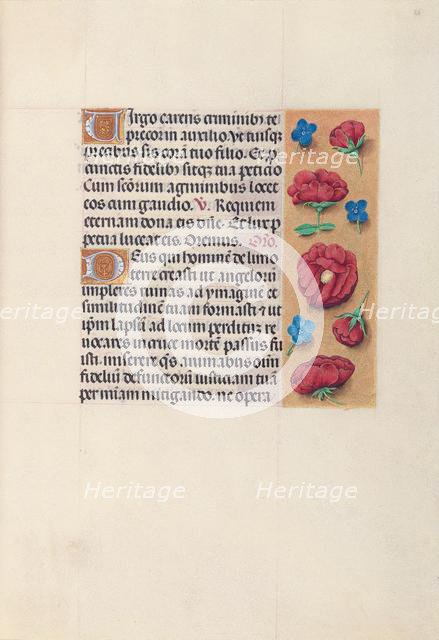 Virgo carens criminibꝯ te
precor in auxilio Vt tuisqꝫ
precibus sis coram tuo filio. Et p̄
cunctis fidelibꝯ sitqꝫ tua peticio
Cum sc̄orum agminibus locet
eos cum gaudio. V. Requiem
eternam dona eis dn̄e. Et lux p̲
petua luceat eis. Oremus. Orō.
Deus qui hominem de limo
terre creasti ut angelorū
suppleres ruinas ad ymaginē et
similitudinem tuam formasti et
ip̄m lapsū ad locum perditū re
uocares in cruce mortē passus fu
isti. miserere q̄s animabus om̄
fidelium defunctorū iusticiam tuā
per mīam mitigando. ne opera
Heritage
Heritage
Heritage
Heritage
Heritage
Heritage